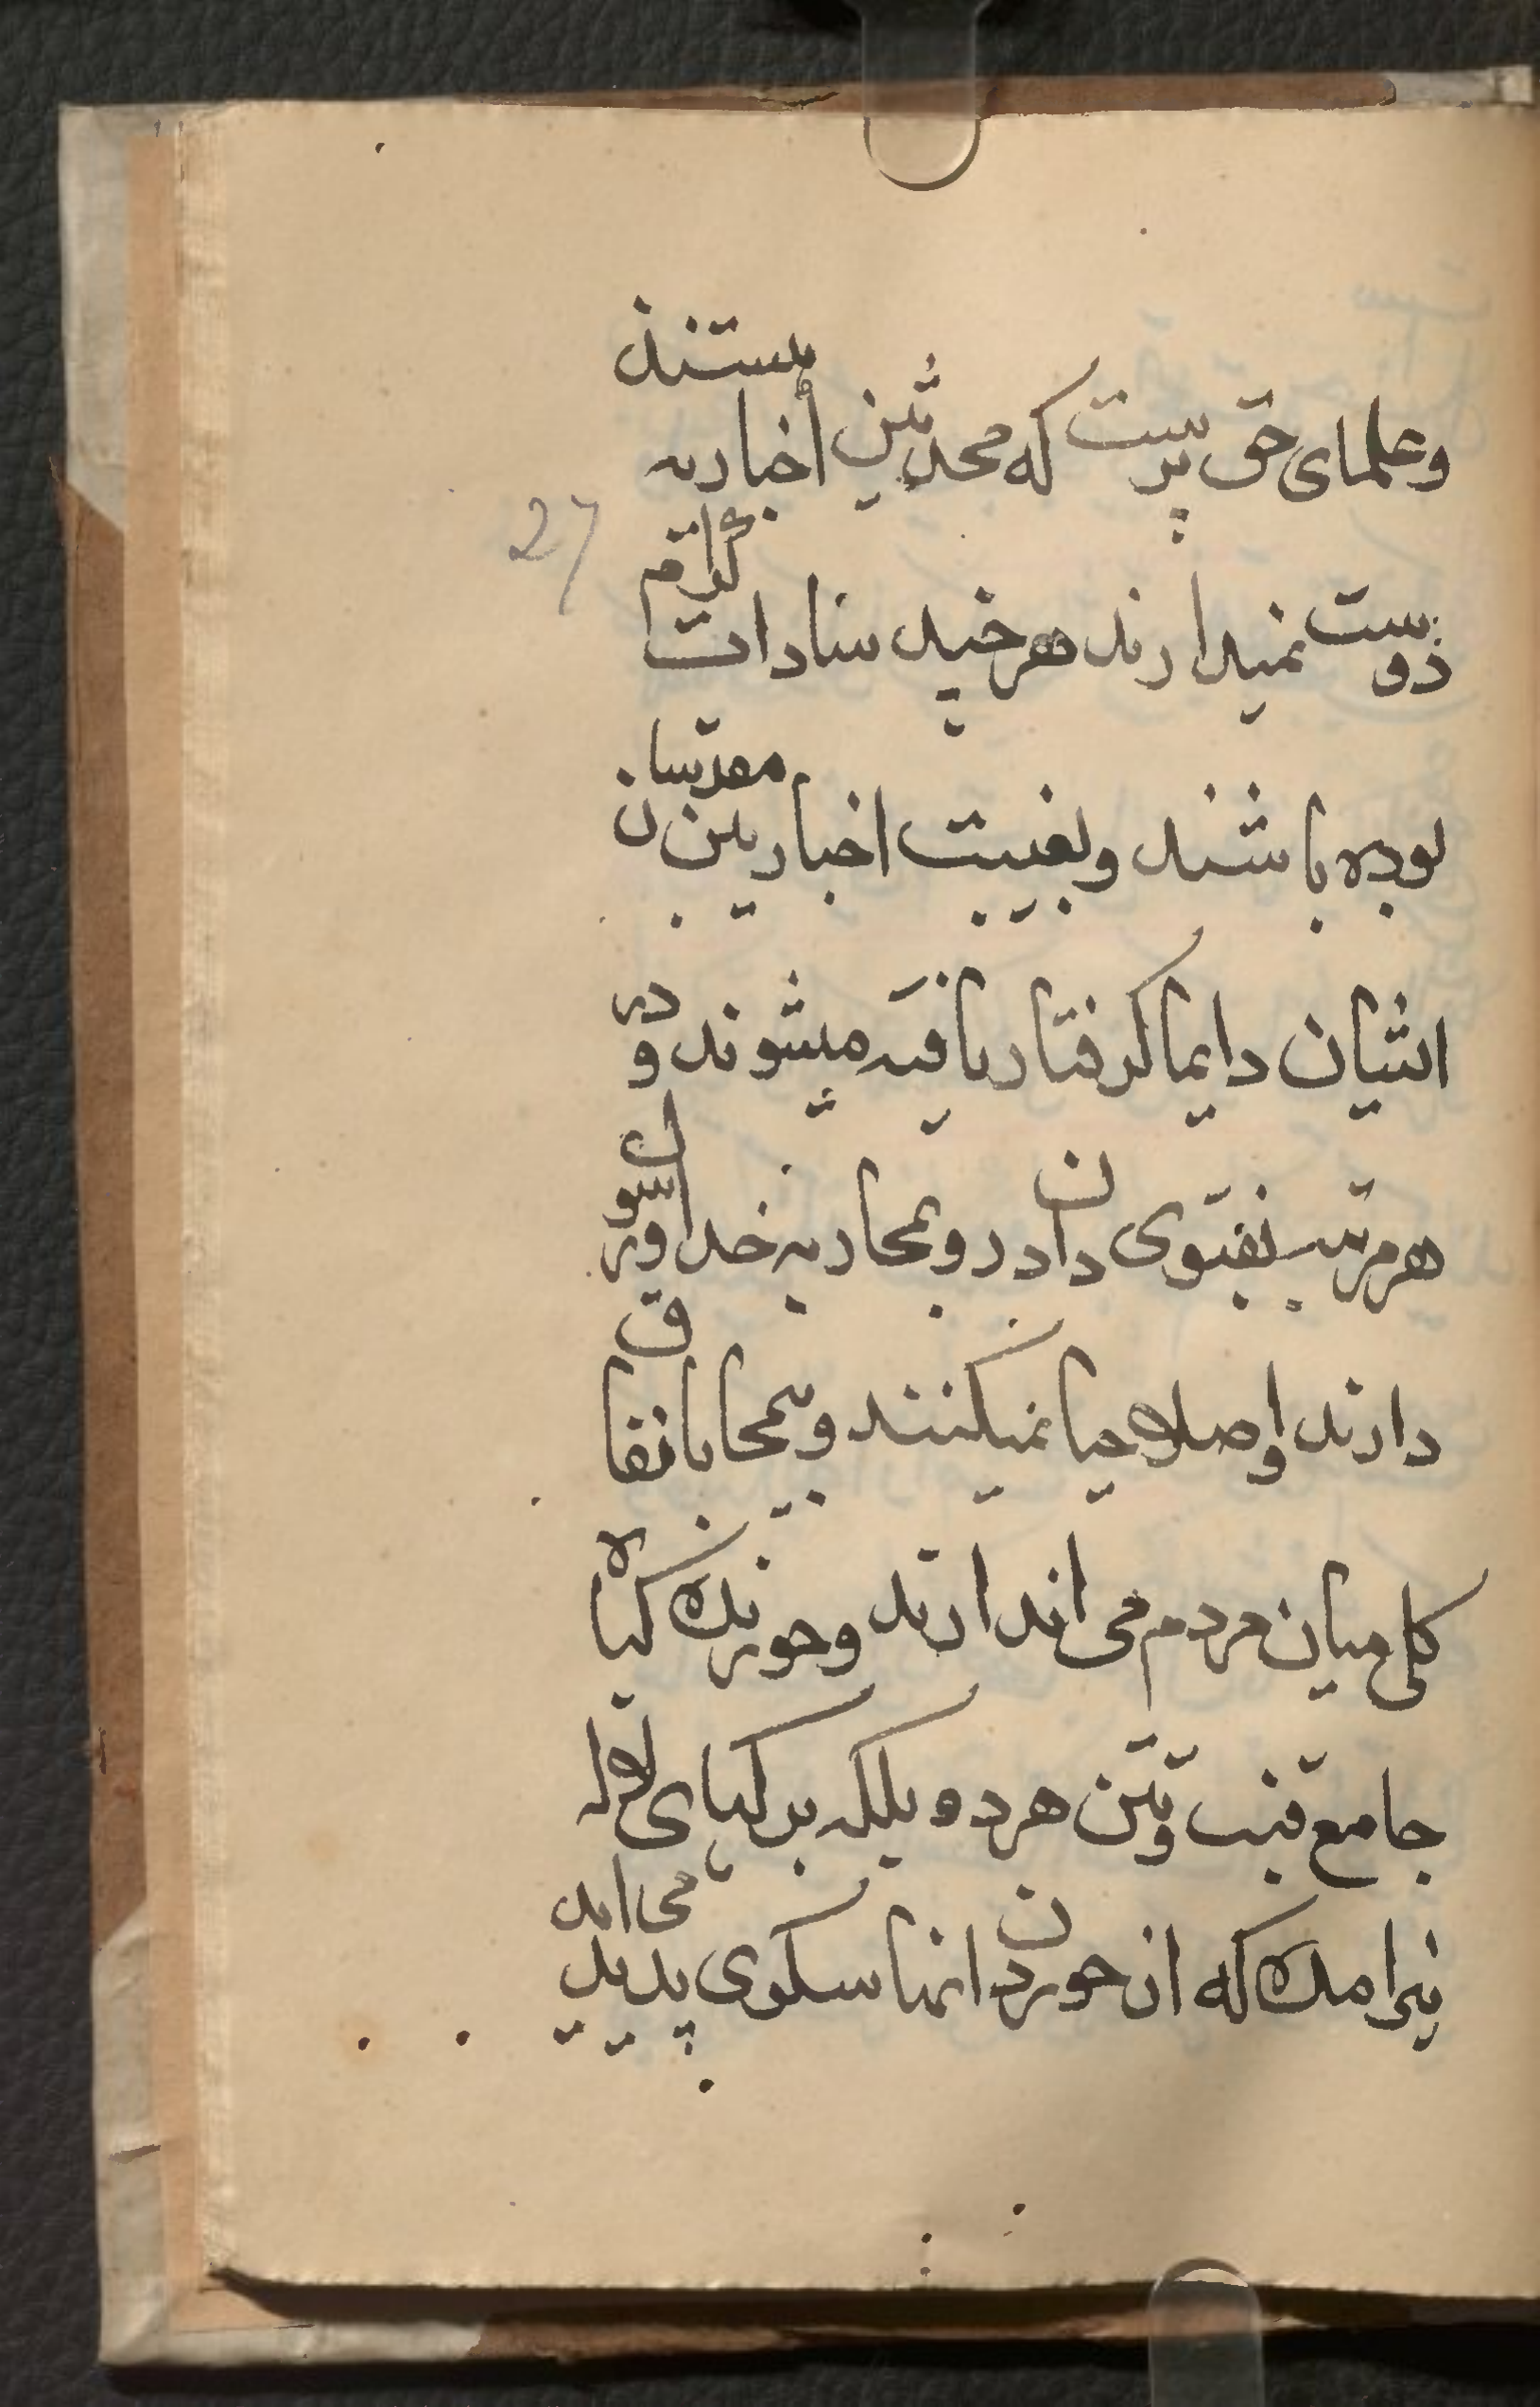 وعلمای حق پرست که محدثین أخباریه هستند
27
دوست نمیدارند هرچند سادات کرام
بوده باشند وبغیبت اخباریین مقدسان
ایشان دایما گرفتار یافته میشوند و در
هر مرتبه بفتوی دادن رو بمحاربه خدا ورسول
دارند واصلا حیا نمیکنند وبیمحابا نفاق
کلی میان مردم می اندازند وجوزیک گیاه
جامع قنب وتتن هر دو بلکه بر گیاهی
نیز امده که از خوردن انها سکوی پدید می اید